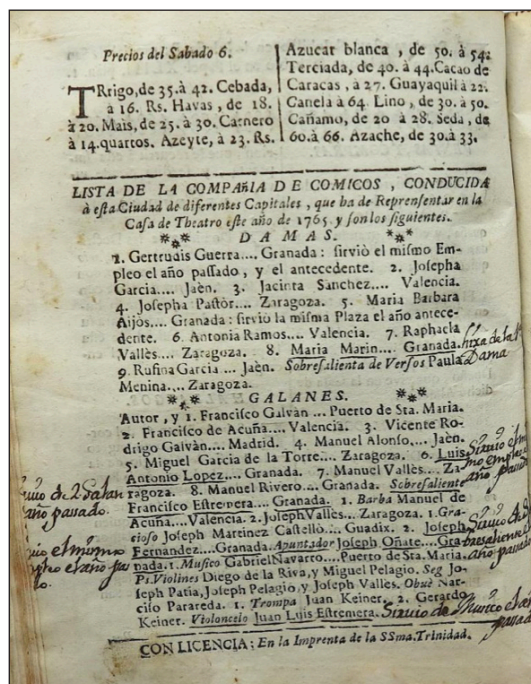 Precios del Sabado 6.
TRrigo, de 35. à 42. Cebada,
à 16. Rs. Havas, de 18.
à 20. Mais, de 25. à 30. Carnero
à 14. quartos. Azeyte, à 23. Rs.
Azucar blanca, de 50. à 54.
Terciada, de 40. à 44. Cacao de
Caracas, à 27. Guayaquil à 22.
Canela à 64. Lino, de 30. à 50.
Cañamo, de 20 à 28. Seda, de
60. à 66. Azache, de 30. à 33.
LISTA DE LA COMPAñIA DE COMICOS, CONDUCIDA
à esta Ciudad de diferentes Capitales, que ha de Reprensentar en la
Casa de Theatro este año de 1765. y son los siguientes.
DAMAS.
1. Gertrudis Guerra.... Granada: sirviò el mismo Em-
pleo el año passado, y el antecedente. 2. Josepha
Garcia.... Jaèn. 3. Jacinta Sanchez.... Valencia.
4. Josepha Pastòr.... Zaragoza. 5. Maria Barbara
Aijos.... Granada: sirvio la misma Plaza el año antece-
dente. 6. Antonia Ramos.... Valencia. 7. Raphaela
Vallès.... Zaragoza. 8. Maria Marin.... Granada. hixa de la
9. Rufina Garcia.... Jaèn. Sobresalienta de Versos Paula Dama
Menina.... Zaragoza.
GALANES.
Autor, y 1. Francisco Galvàn.... Puerto de Sta. Maria.
2. Francisco de Acuña.... Valencia. 3. Vicente Ro-
drigo Galvàn.... Madrid. 4. Manuel Alonso.... Jaèn.
5. Miguel Garcia de la Torre.... Zaragoza. 6. Luis
Antonio Lopez.... Granada. 7. Manuel Vallès.... Za-
ragoza. 8. Manuel Rivero.... Granada. Sobresaliente
Francisco Estremera.... Granada. 1. Barba Manuel de
Acuña.... Valencia. 2. Joseph Valles.... Zaragoza. 1. Gra-
cioso Joseph Martinez Castellò.... Guadix. 2. Joseph
Fernandez.... Granada. Apuntador Joseph Oñate.... Gra-
nada. 1. Musico Gabriel Navarro.... Puerto de Sta. Maria.
P1. Violines Diego de la Riva, y Miguel Pelagio. Seg Jo-
seph Patia, Joseph Pelagio, y Joseph Valles. Obuè Nar-
ciso Parareda. 1. Trompa Juan Keiner. 2. Gerardo
Keiner. Violoncelo Juan Luis Estremera. Siruio de Musico el año
pasado
Siruio de 2 Galan
año pasado.
Siruio el mismo
empleo el año pa
do.
Siruio el mis
mo empleo el
año pasado
CON LICENCIA: En la Imprenta de la SSma. Trinidad.